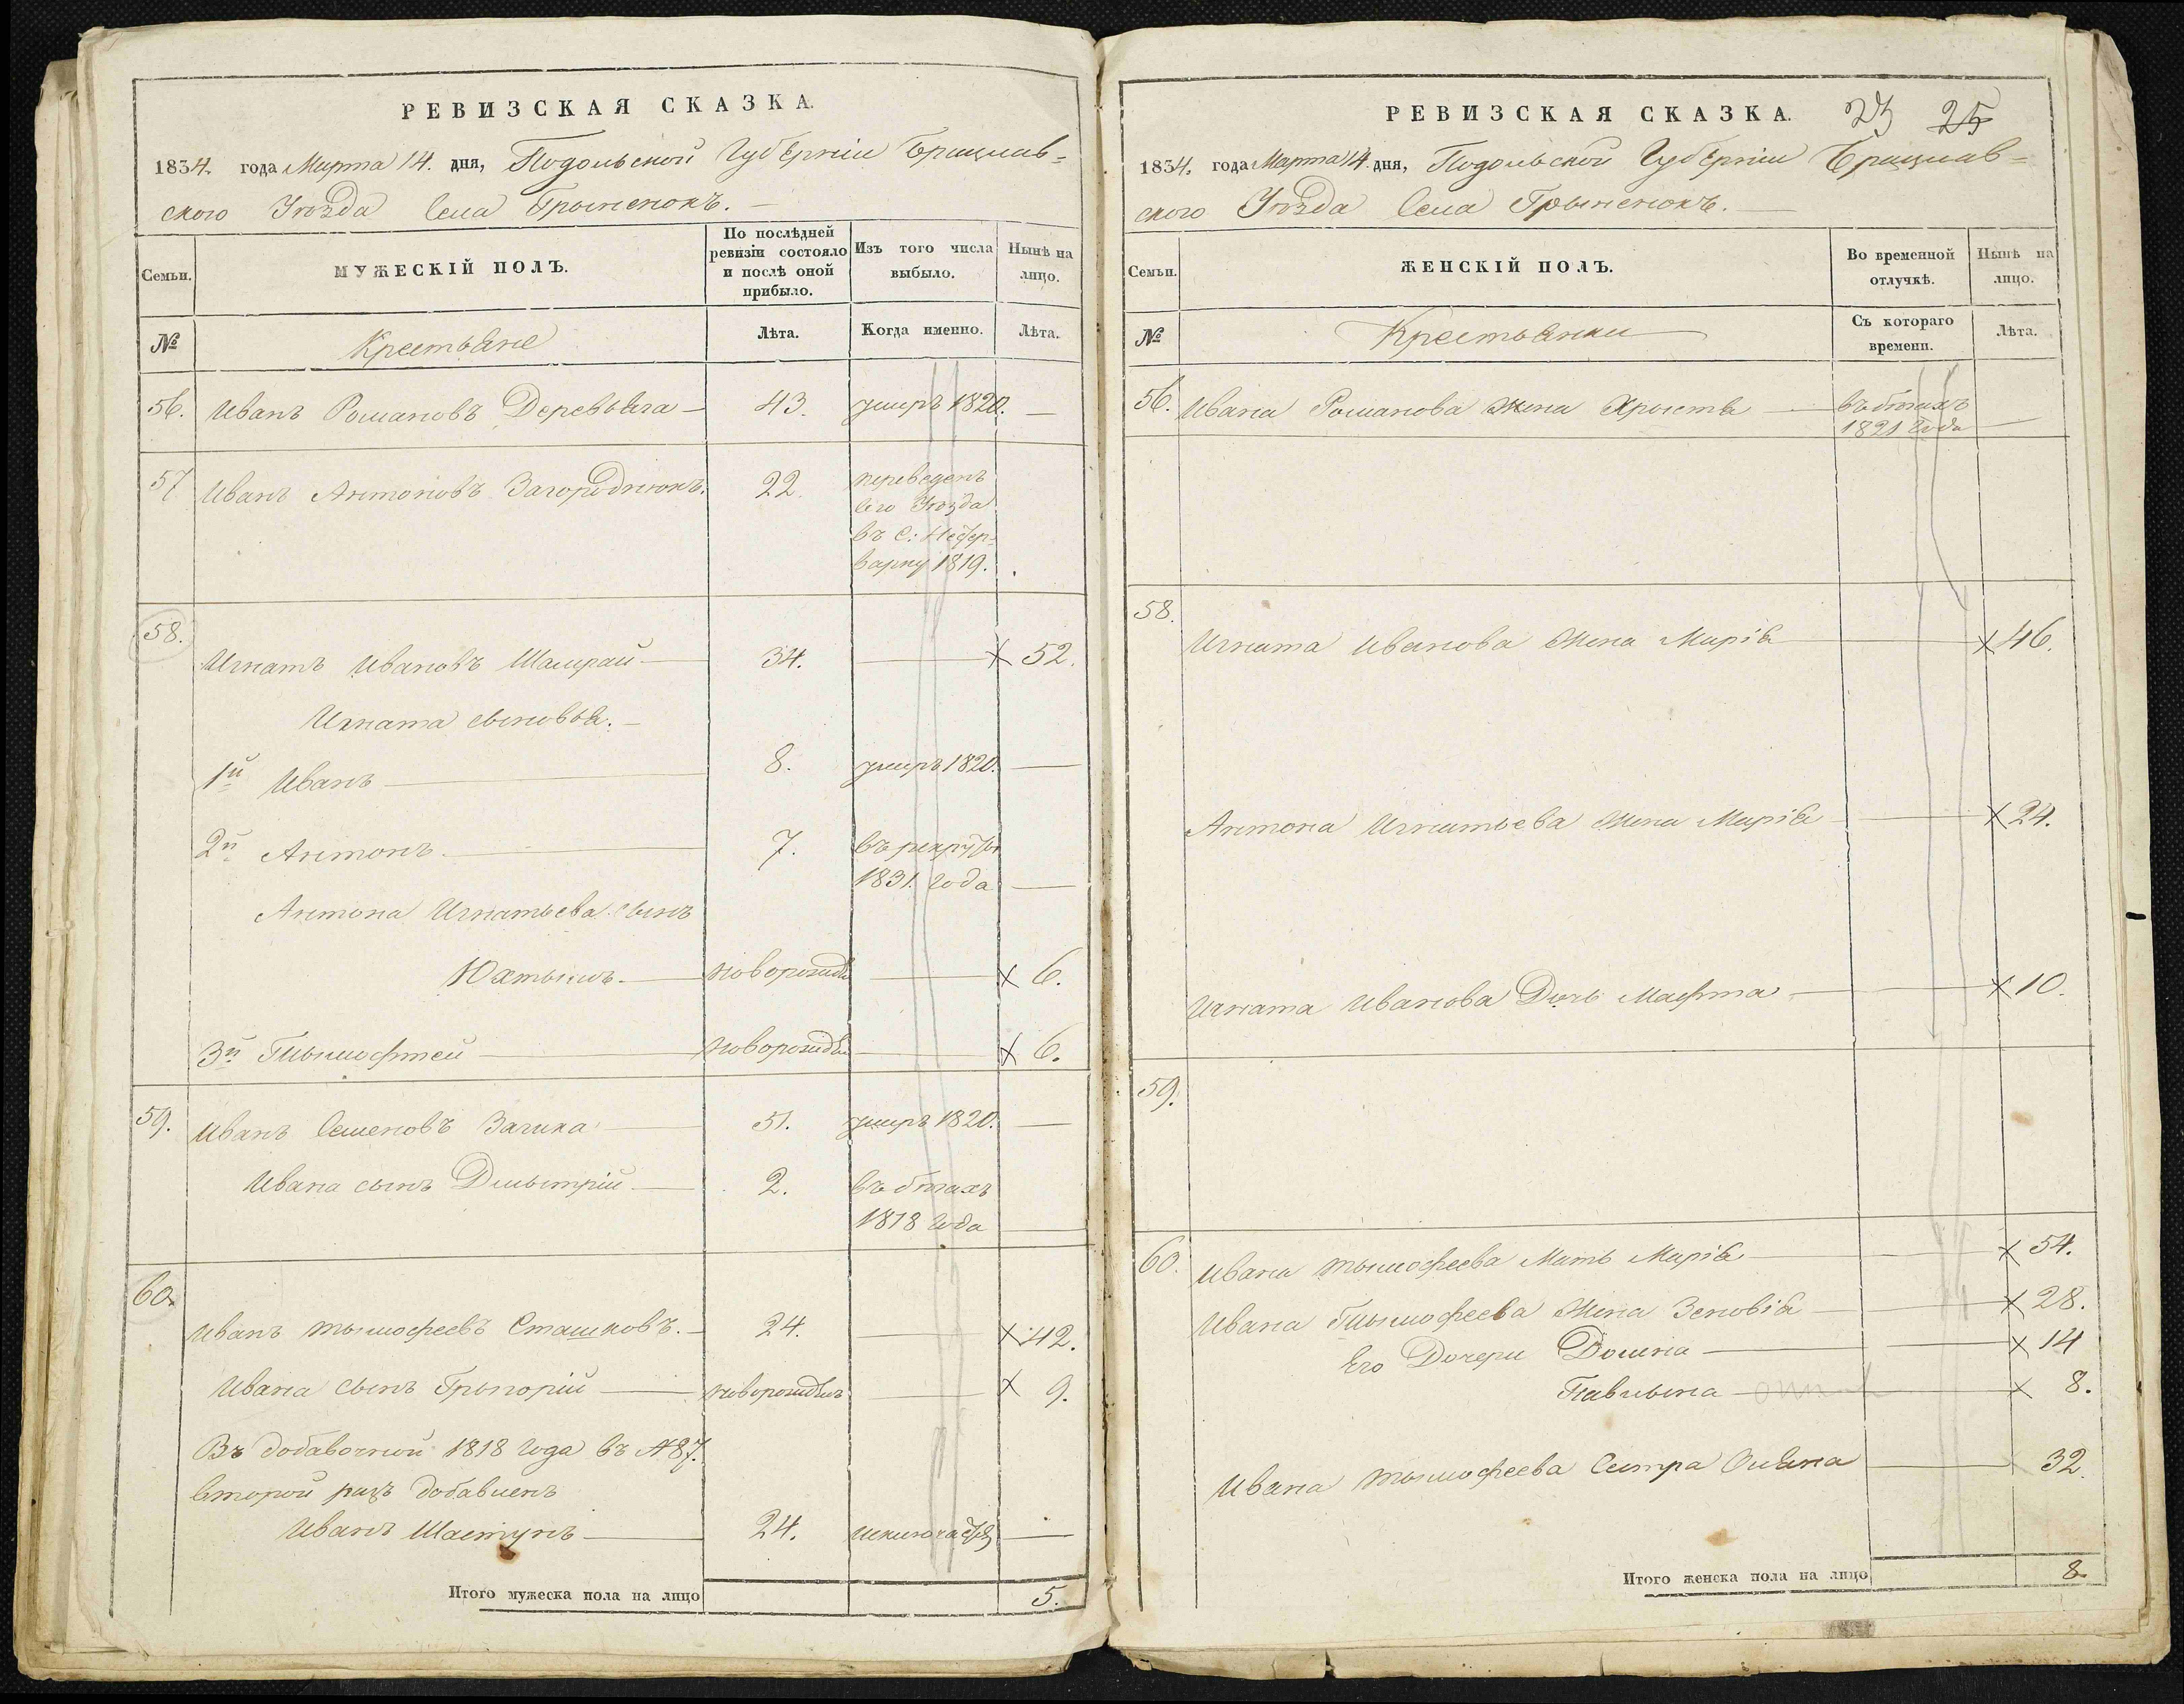 РЕВИЗСКАЯ СКАЗКА.
1834. года Марта 14. дня, Подольской Губерніи Брацлав=
ского Уѣзда Села Грыненокъ.
Семьи.
МУЖЕСКІЙ ПОЛЪ.
По послѣдней ревизіи состояло и послѣ оной прибыло.
Изъ того числа выбыло.
Нынѣ на лицо.
№
Крестьяне
Лѣта.
Когда именно.
Лѣта.
56. Иванъ Романовъ 43. умеръ 1820. —
57 Иванъ Антоновъ Загороднюкъ. 22. переведенъ
Уѣзда
въ С:
1819.
58.
Игнатъ Ивановъ 34. — х 52.
Игната сыновья. —
1й Иванъ — 8. умеръ 1820. —
2й Антонъ — 7. въ рекруты
1831. года —
Антона Игнатьева сынъ
Юхтымъ — новорожде — х 6.
3й Тымофтей — новорожден — х 6.
59. Иванъ Семеновъ 51. умеръ 1820. —
Ивана сынъ Дмытрій — 2. въ бѣгахъ
1818 года —
60.
Иванъ Тымофеевъ Сташковъ. — 24. — х 42.
Ивана сынъ Грыгорій — новорожденъ — х 9.
Въ добавочной 1818 года въ №87.
второй разъ добавленъ
Иванъ Шастунъ — 24. —
Итого мужеска пола на лицо 5.
РЕВИЗСКАЯ СКАЗКА. 23 25
1834. года Марта 14. дня, Подольской Губерніи Брацлав=
ского Уѣзда Села Грыненокъ. —
Семьи.
ЖЕНСКІЙ ПОЛЪ.
Во временной отлучкѣ.
Нынѣ на лицо.
№
Крестьянки
Съ котораго времени.
Лѣта.
56. Ивана Романова жена Хрыстя — въ бѣгахъ
1821 года —
58.
Игната Иванова жена Марія — х 46.
Антона Игнатьева жена Марія — х 24.
Игната Иванова Дочь Мафта — х 10.
59.
60. Ивана Тымофеева Мать Марія — х 54.
Ивана Тымофеева жена Зеновія — х 28.
Его Дочери Домна — х 14
Павлына — х 8.
Ивана Тымофеева Сестра Оляна — 32.
Итого женска пола на лицо 8.